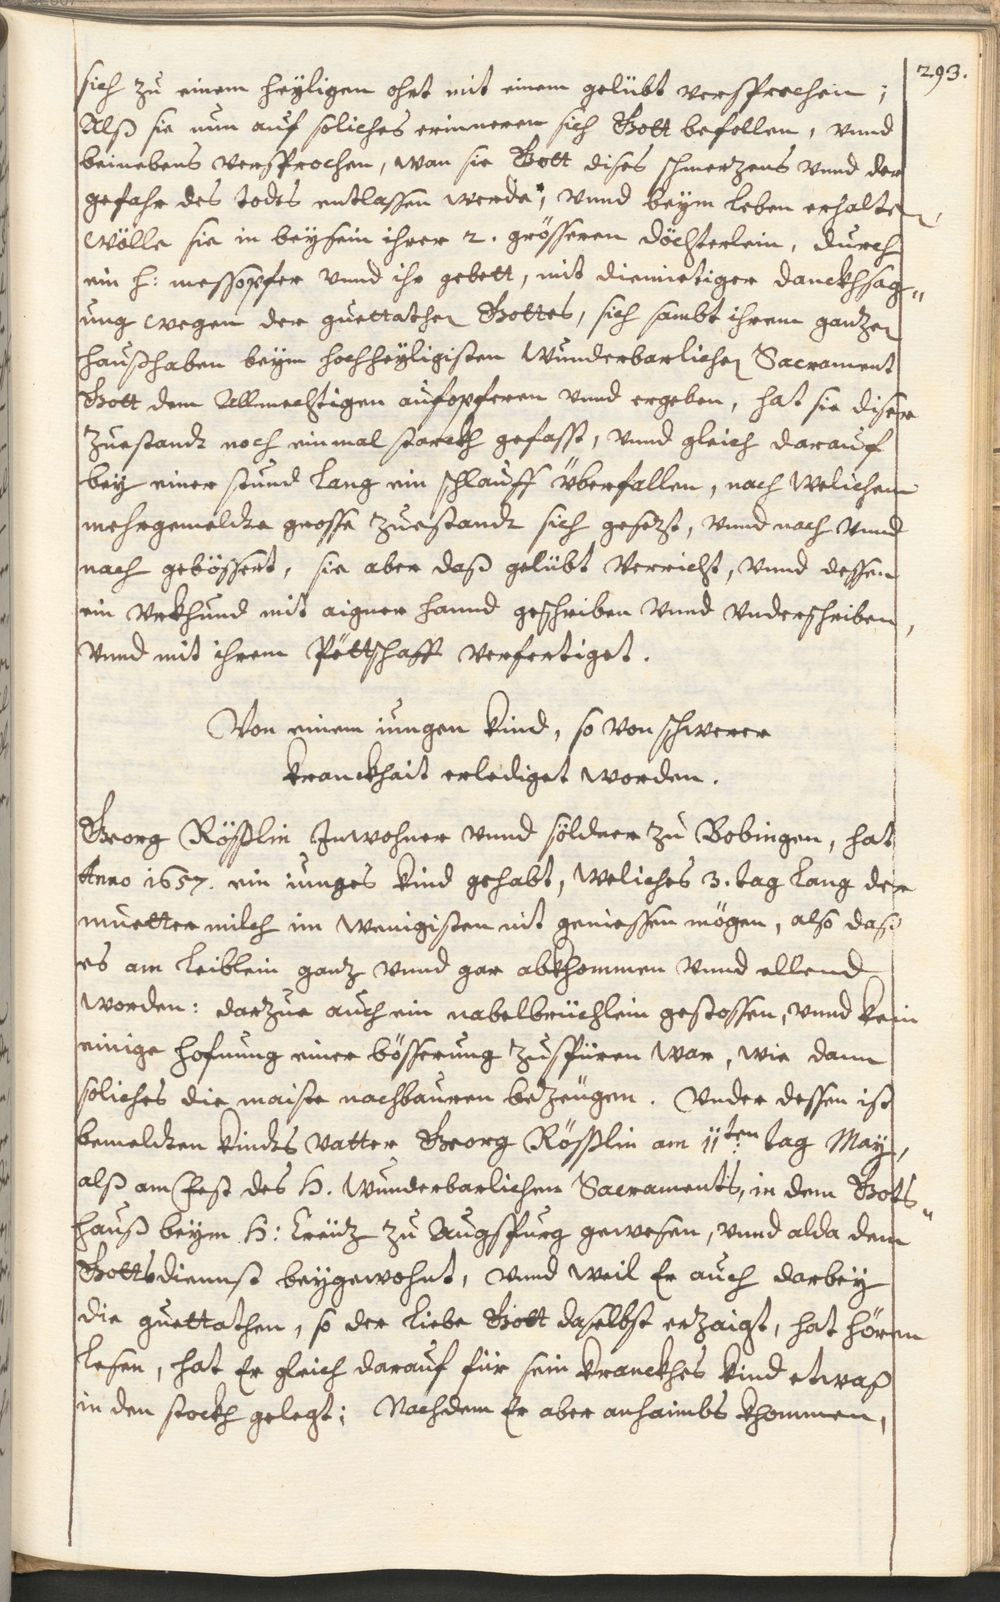 293.
sich zu einem heÿligen ohrt mit einem gelübt versprochen;
Alß sie nun auf soliches erinneren sich Gott befollen, vnnd
beinebens versprochen, wan sie Gott dises schmertzens vnnd der
gefahr des todts entlassen werde, vnnd beym leben erhalten,
wölle sie in beysein ihrer 2. grösseren döchterlein, durch
ein h: messopfer vnnd ihr gebett, mit diemietiger danckhsag„
ung wegen der guettathen Gottes, sich sambt ihrem gantzen
haußhaben beym hochheÿligisten Wunderbarlichen Sacrament
Gott dem Allmechtigen aufopferen vnnd ergeben, hat sie diser
zuestandt noch einmal starckh gefasst, vnnd gleich darauf
bey einer stund lang ein schlauff überfallen, nach welichem
mehrgemeldte grosse zuestandt sich gesetzt, vnnd nach vnnd
nach gebössert, sie aber daß gelübt verricht, vnnd dessen
ein vrkhund mit aigner hannd geschriben vnnd vnderschriben,
vnnd mit ihrem Pöttschafft verfertiget.
Von einem iungen kind, so von schwerer
kranckhait erlediget worden.
Georg Rößlin Inwohner vnnd söldner zu Bobingen, hat
Anno 1657. ein iunges kind gehabt, weliches 3. tag lang der
muetter milch im wenigisten nit geniessen mögen, also daß
es am leiblein gantz vnnd gar abkhommen vnnd ellend
worden: darzue auch ein nabelbrüchlein gestossen, vnnd kein
einige hofnung einer bösserung zuspüren war, wie dann
soliches die maiste nachbauren bezeügen. Vnder dessen ist
bemeldten kindts vatter Georg Rößlin am 11ten tag May,
alß am fest des H. Wunderbarlichen Sacraments, in dem Gotts„
hauß beym H: Creütz zu Augspurg gewesen, vnnd alda dem
Gottsdiennst beygewohnt, vnnd weil Er auch darbey
die guettathen, so der liebe Gott daselbst erzaigt, hat hören
lesen, hat Er gleich darauf für sein kranckhes kind etwaß
in den stockh gelegt; Nachdem Er aber anhaimbs khommen,